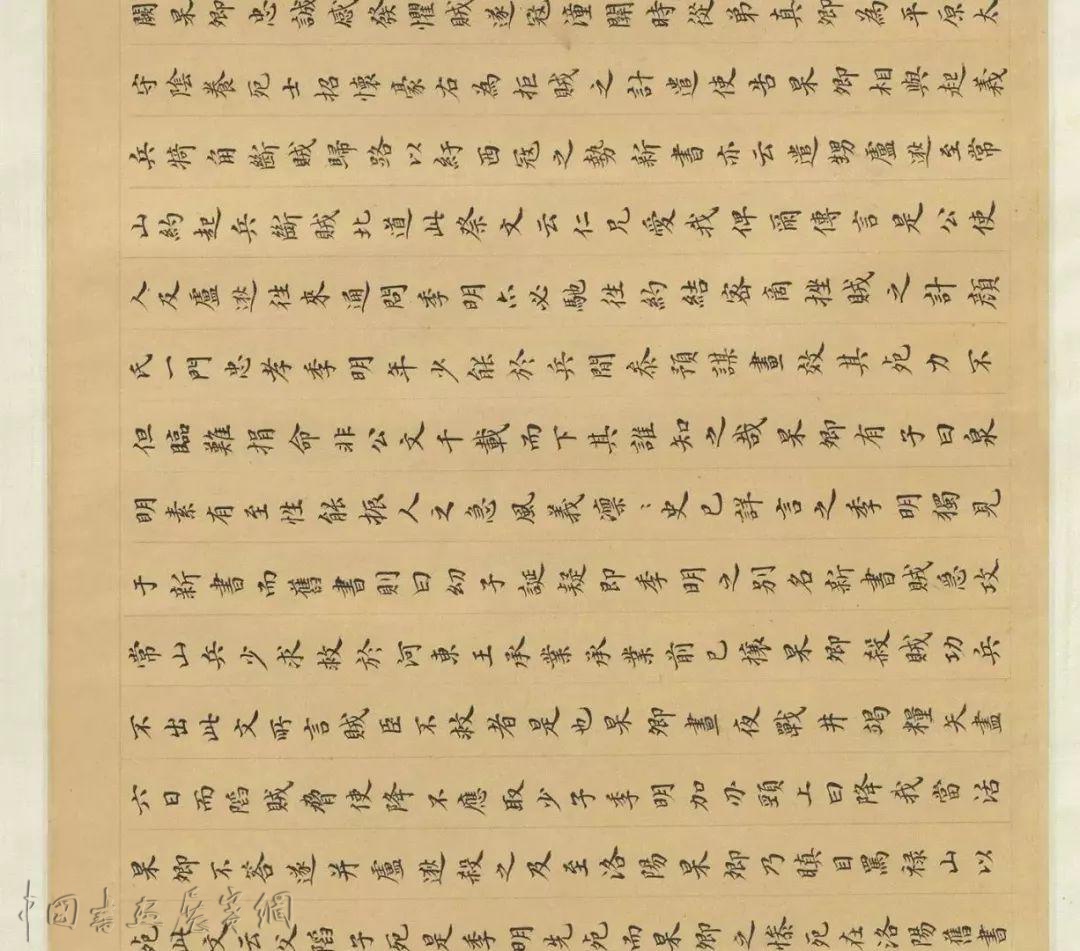 闕杲卿忠誠感發懼賊遂寇潼關時從弟真卿為平原太
守陰養死士招懷豪右為拒賊之計遣使告杲卿相與起義
兵犄角斷賊歸路以紓西寇之勢新書亦云遣甥盧逖至常
山約起兵斷賊北道此祭文云仁兄愛我俾爾傳言是公使
人及盧逖往來通問季明亦必馳往約結密商挫賊之計顔
氏一門忠孝季明年少能於兵間叅預謀畫效其死力不
但臨難捐命非公文千載而下其誰知之哉杲卿有子曰泉
明素有至性能振人之急風義凛〻史已詳言之季明獨見
于新書而舊書則曰幼子誕疑即季明之别名新書賊急攻
常山兵少求救於河東王承業承業前已攘杲卿殺賊功兵
不出此文所言賊臣不救者是也杲卿晝夜戰井竭糧矢盡
六日而陷賊脅使降不應取少子季明加刃頸上曰降我當活
杲卿不答遂并盧逖殺之及至洛陽杲卿乃瞋目罵禄山以
死此文云父陷子死是季明先死而杲卿之慘死在洛陽舊書